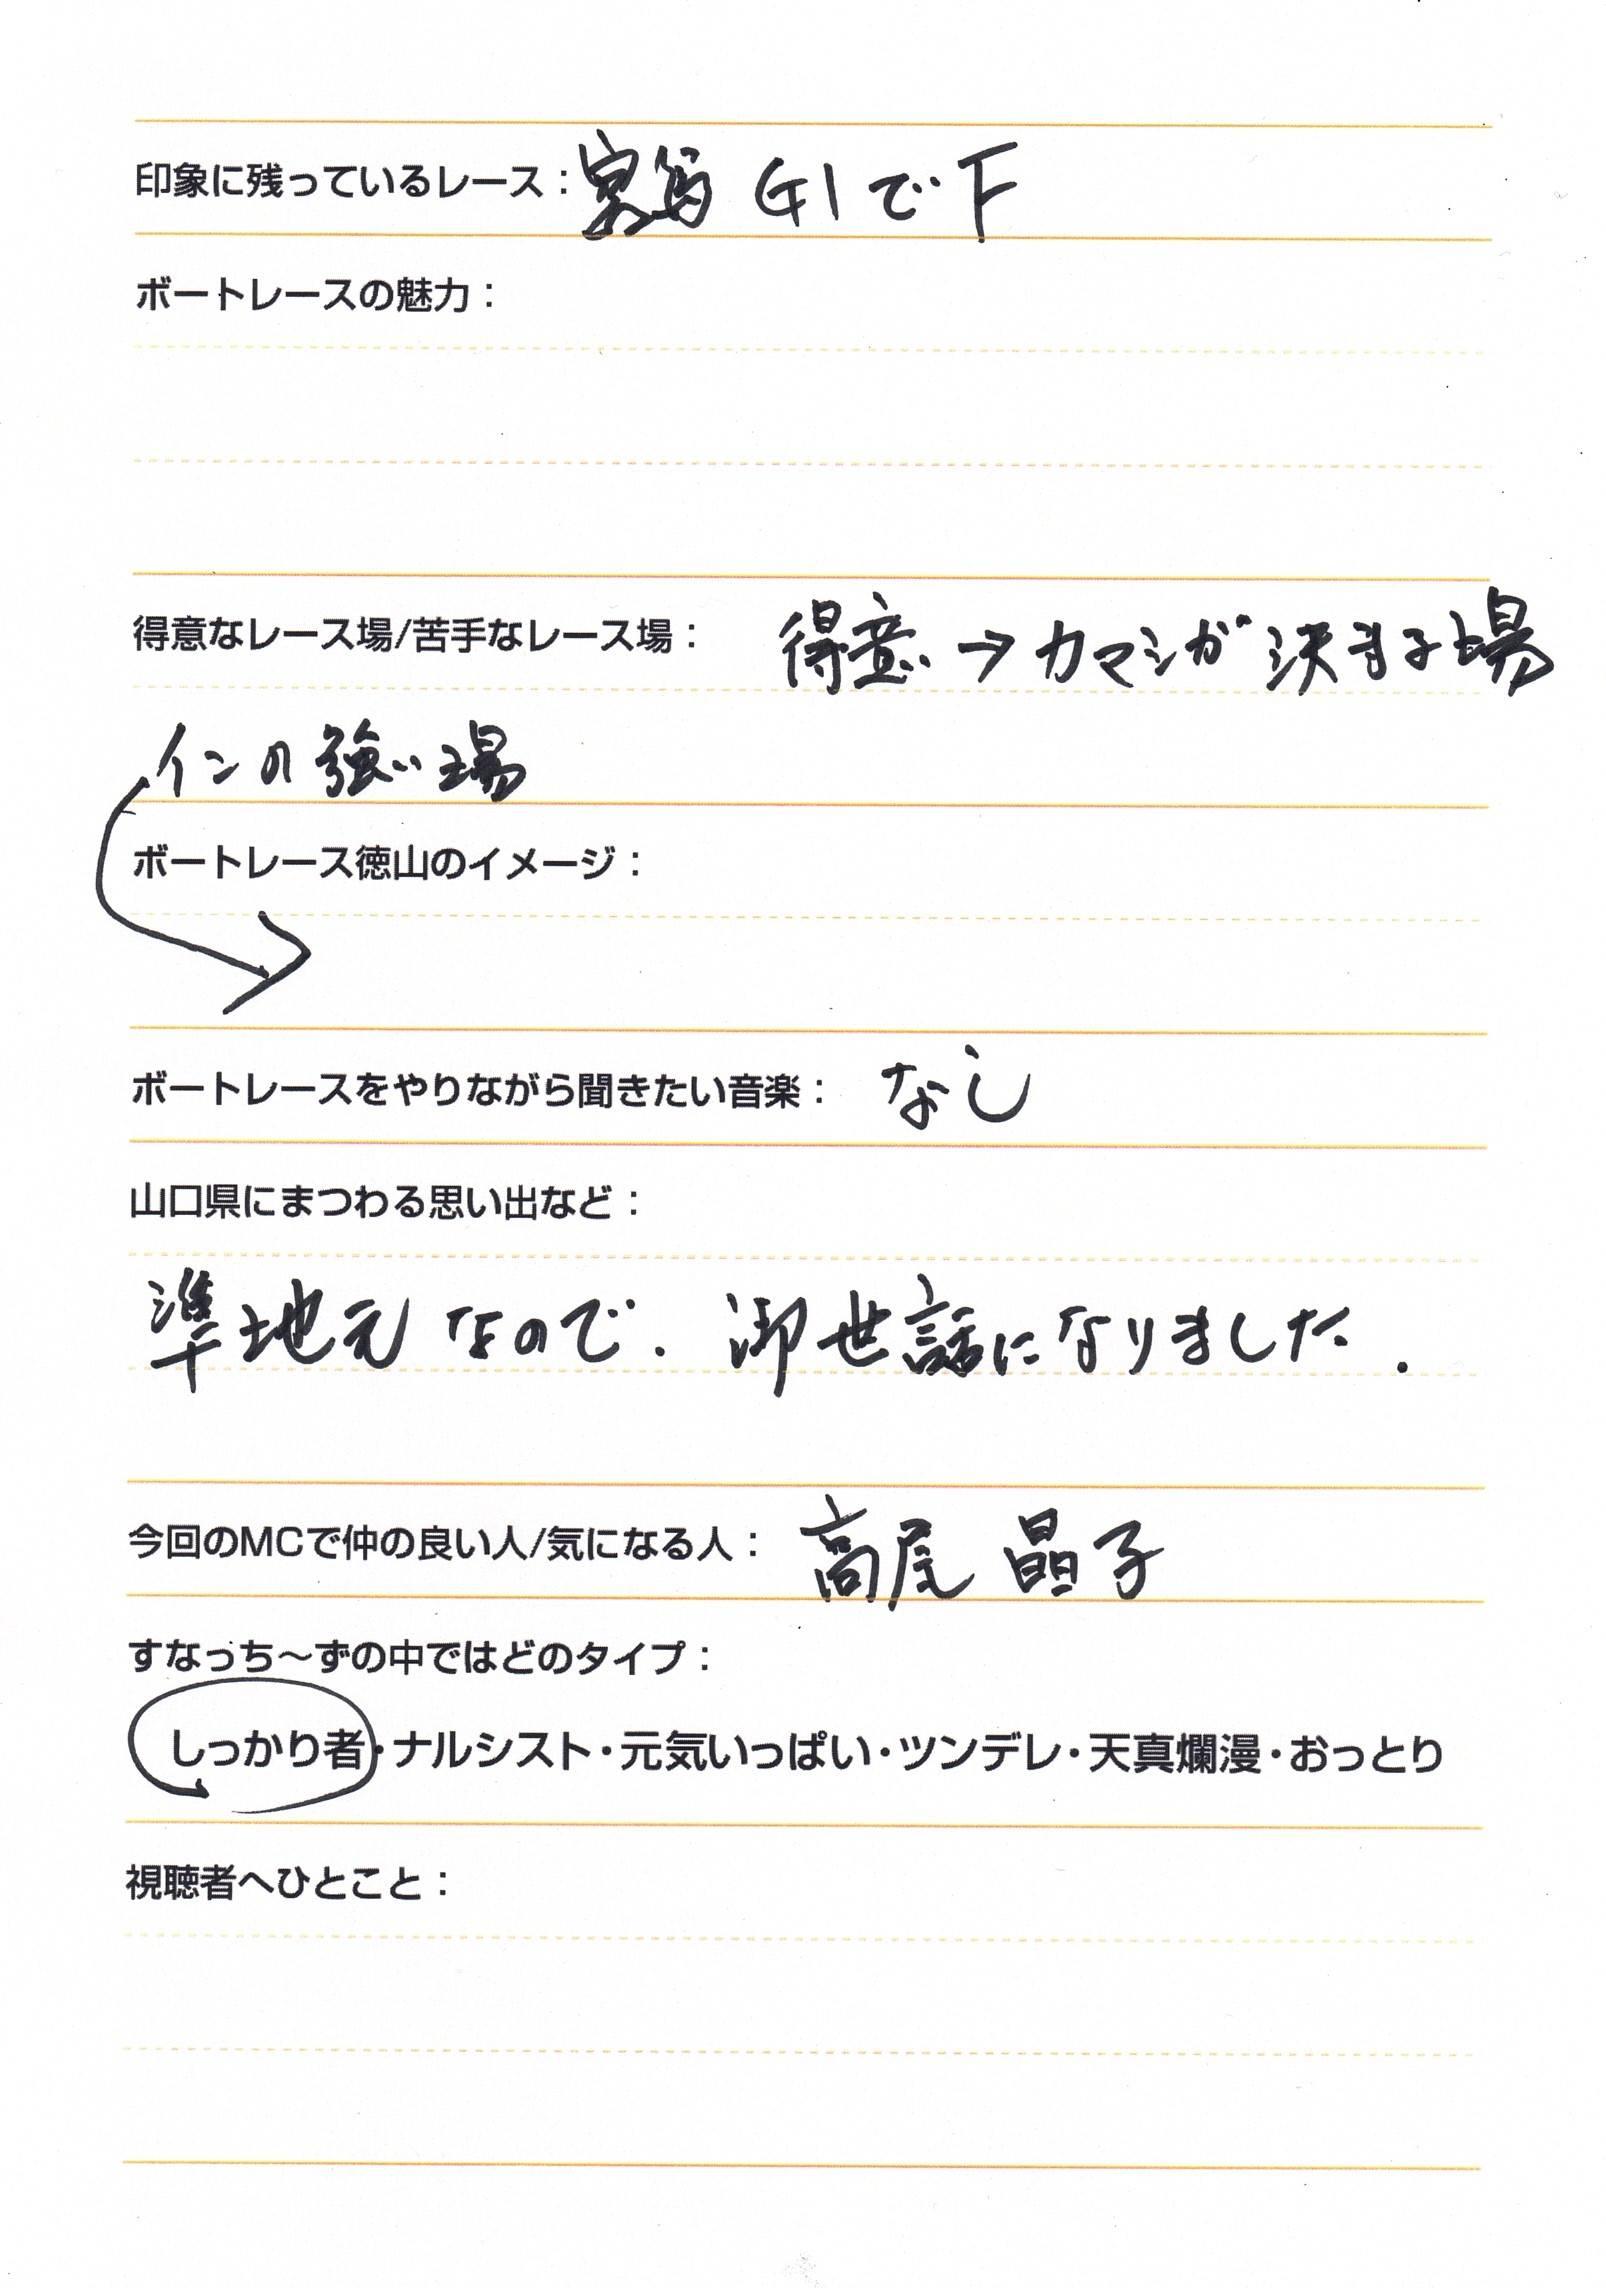 印象に残っているレース：宮島 G1でF
ボートレースの魅力：
得意なレース場/苦手なレース場： 得意→カマシが決まる場
インの強い場
ボートレース徳山のイメージ：
ボートレースをやりながら聞きたい音楽： なし
山口県にまつわる思い出など：
準地元なので. 御世話になりました.
今回のMCで仲の良い人/気になる人： 高尾 晶子
すなっち～ずの中ではどのタイプ：
しっかり者・ナルシスト・元気いっぱい・ツンデレ・天真爛漫・おっとり
視聴者へひとこと：